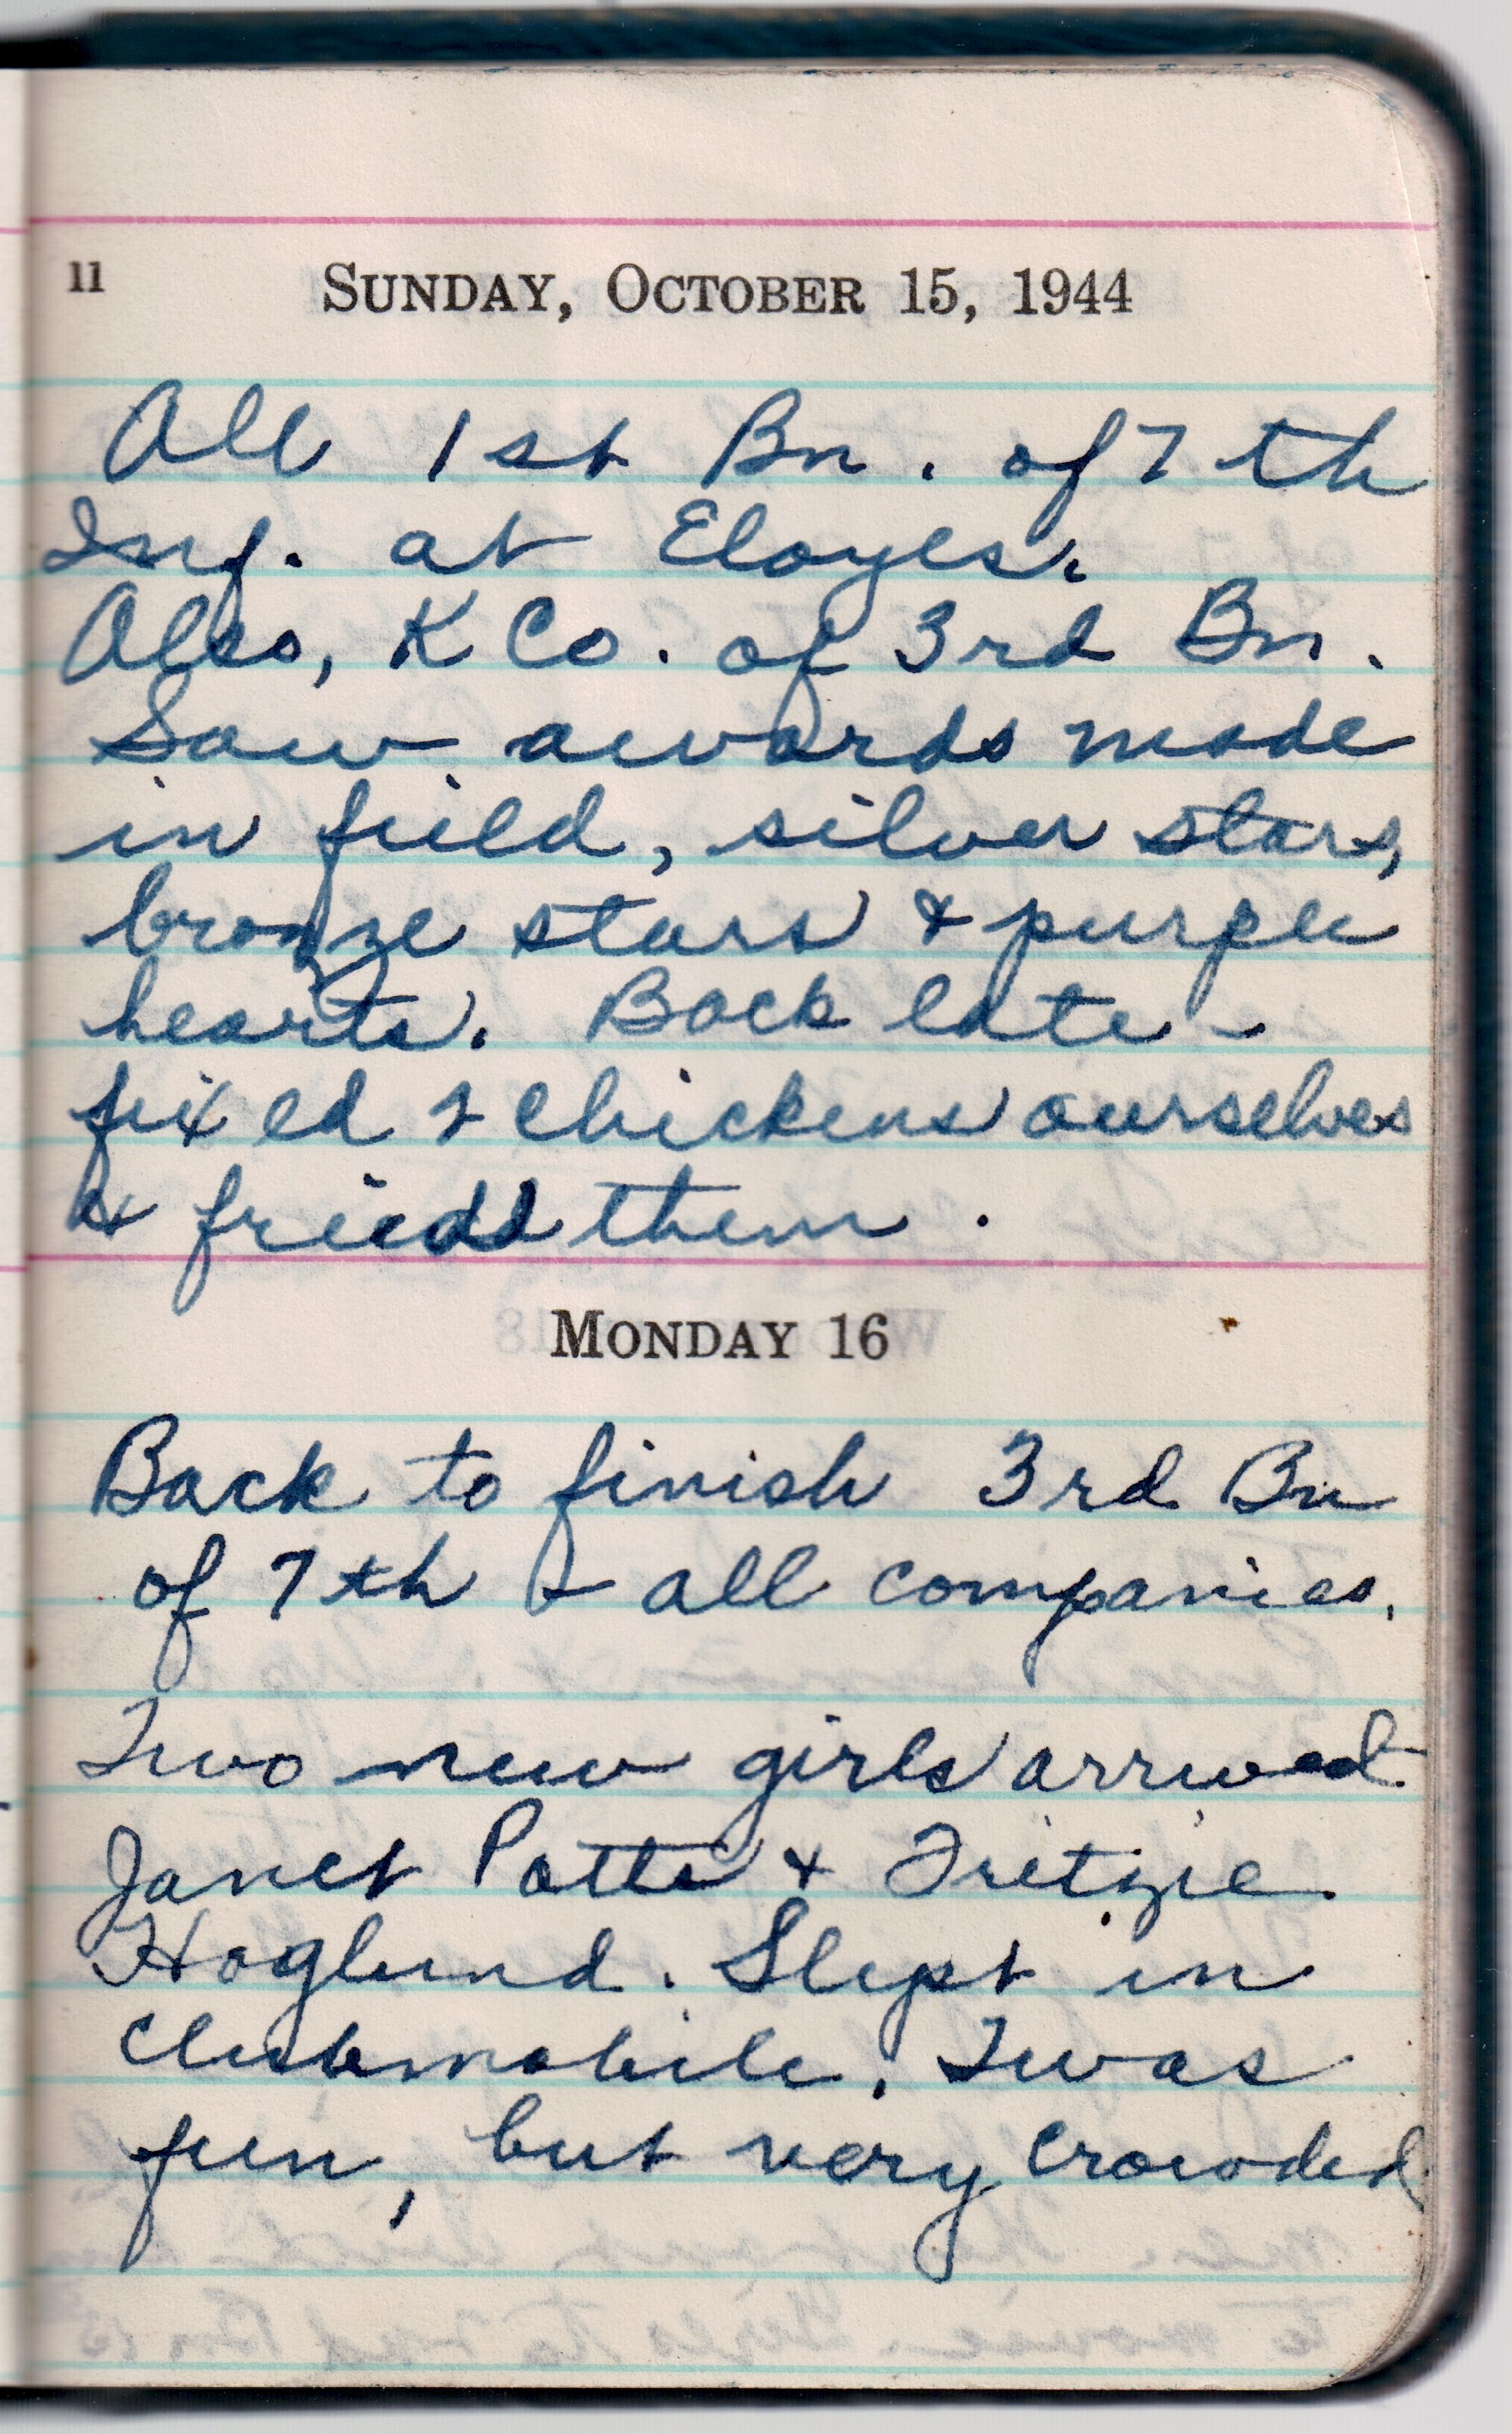 11 SUNDAY, OCTOBER 15, 1944
All 1st Bn. of 7th
Inf. at Eloyes.
Also, K Co. of 3rd Bn.
Saw awards made
in field, silver stars,
bronze stars & purple
hearts. Back late -
fixed 2 chickens ourselves
& fried them.
MONDAY 16
Back to finish 3rd Bn
of 7th & all companies.
Two new girls arrived
Janet Potts + Fritzie
Hoglund. Slept in
clubmobile. Twas
fun, but very crowded